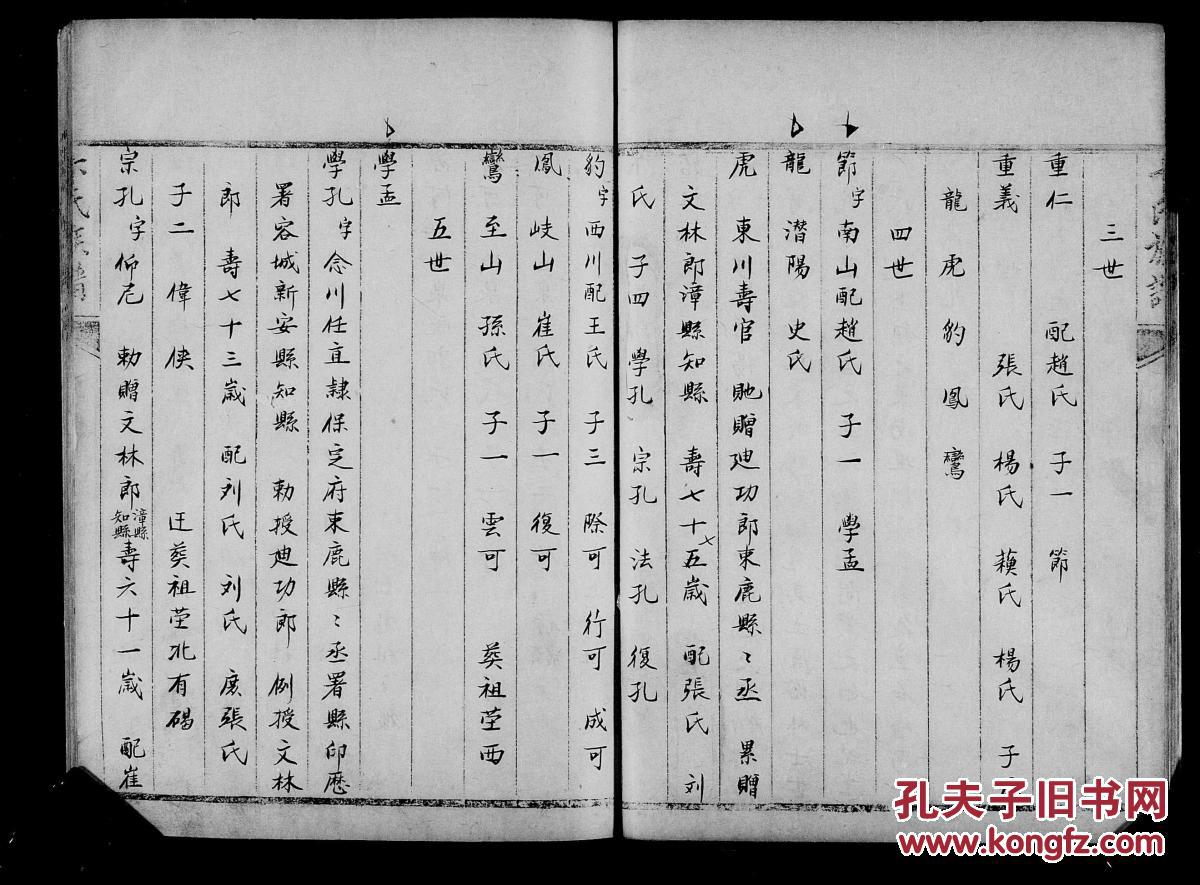 三世
重仁　配趙氏　子一　節
重義　張氏　楊氏　蘓氏　楊氏　子
龍　虎　豹　鳳　鸞
四世
節字南山配趙氏　子一　學孟
龍　潛陽　史氏
虎　東川壽官　貤贈廸功郎束鹿縣〻丞　累贈
文林郎漳縣知縣　壽七十五歲　配張氏　刘
氏　子四　學孔　宗孔　法孔　復孔
豹字西川配王氏　子三　際可　行可　成可
鳳　岐山　崔氏　子一　復可
鸞　至山　孫氏　子一　雲可　葵祖茔西
五世
學孟
學孔字念川任直隷保定府束鹿縣〻丞署縣印歷
署容城新安縣知縣　勅授廸功郎　例授文林
郎　壽七十三歲　配刘氏　刘氏　庶張氏
子二　偉　侠　迁葵祖茔北有碣
宗孔字仰尼　勅贈文林郎漳縣知縣壽六十一歲　配崔
氏族譜
孔夫子旧书网
www.kongfz.com